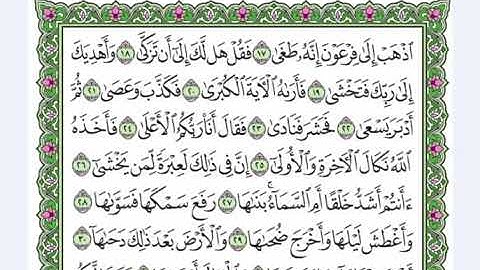 ٱذۡهَبۡ إِلَىٰ فِرۡعَوۡنَ إِنَّهُۥ طَغَىٰ ١٧ فَقُلۡ هَل لَّكَ إِلَىٰٓ أَن تَزَكَّىٰ ١٨ وَأَهۡدِيَكَ
إِلَىٰ رَبِّكَ فَتَخۡشَىٰ ١٩ فَأَرَىٰهُ ٱلۡأٓيَةَ ٱلۡكُبۡرَىٰ ٢٠ فَكَذَّبَ وَعَصَىٰ ٢١ ثُمَّ
أَدۡبَرَ يَسۡعَىٰ ٢٢ فَحَشَرَ فَنَادَىٰ ٢٣ فَقَالَ أَنَا۠ رَبُّكُمُ ٱلۡأَعۡلَىٰ ٢٤ فَأَخَذَهُ
ٱللَّهُ نَكَالَ ٱلۡأٓخِرَةِ وَٱلۡأُولَىٰٓ ٢٥ إِنَّ فِي ذَٰلِكَ لَعِبۡرَةٗ لِّمَن يَخۡشَىٰٓ ٢٦
ءَأَنتُمۡ أَشَدُّ خَلۡقًا أَمِ ٱلسَّمَآءُۚ بَنَىٰهَا ٢٧ رَفَعَ سَمۡكَهَا فَسَوَّىٰهَا ٢٨
وَأَغۡطَشَ لَيۡلَهَا وَأَخۡرَجَ ضُحَىٰهَا ٢٩ وَٱلۡأَرۡضَ بَعۡدَ ذَٰلِكَ دَحَىٰهَآ ٣٠